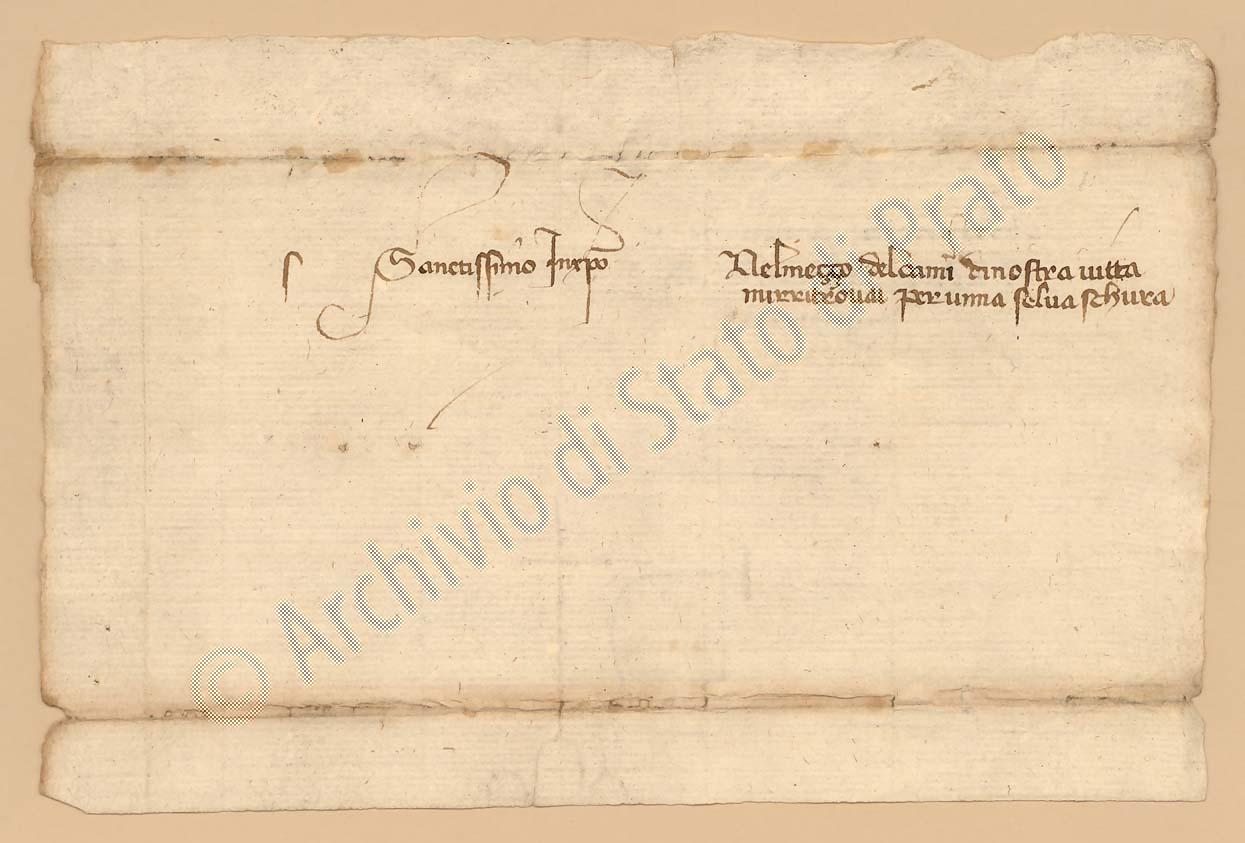 Sanctissimo Inxpo
Nel meçço del cami di nostra vitta
mi rritrovai per unna selva schura
© Archivio di Stato di Prato